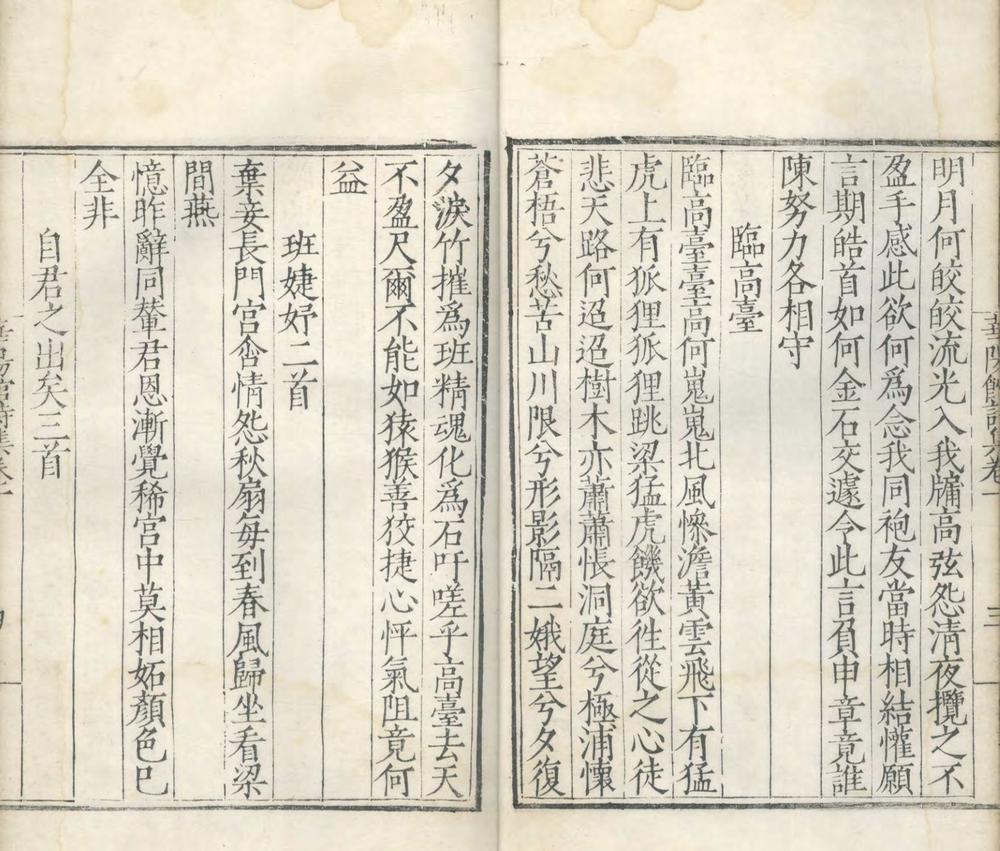 華陽館詩集卷一
三
明月何皎皎流光入我牗高弦怨清夜攬之不
盈手感此欲何爲念我同袍友當時相結懽願
言期皓首如何金石交遽令此言負申章竟誰
陳努力各相守
臨高臺
臨高臺臺高何嵬嵬北風慘澹黃雲飛下有猛
虎上有狐狸狐狸跳梁猛虎饑欲徃從之心徒
悲天路何迢迢樹木亦蕭蕭悵洞庭兮極浦懷
蒼梧兮愁苦山川限兮形影隔二娥望兮夕復
夕淚竹摧爲班精魂化爲石吁嗟乎高臺去天
不盈尺爾不能如猿猴善狡捷心怦氣阻竟何
益
班婕妤二首
棄妾長門宮含情怨秋扇每到春風歸坐看梁
間燕
憶昨辭同輦君恩漸覺稀宮中莫相妬顏色巳
全非
自君之出矣三首
華陽館詩集卷一